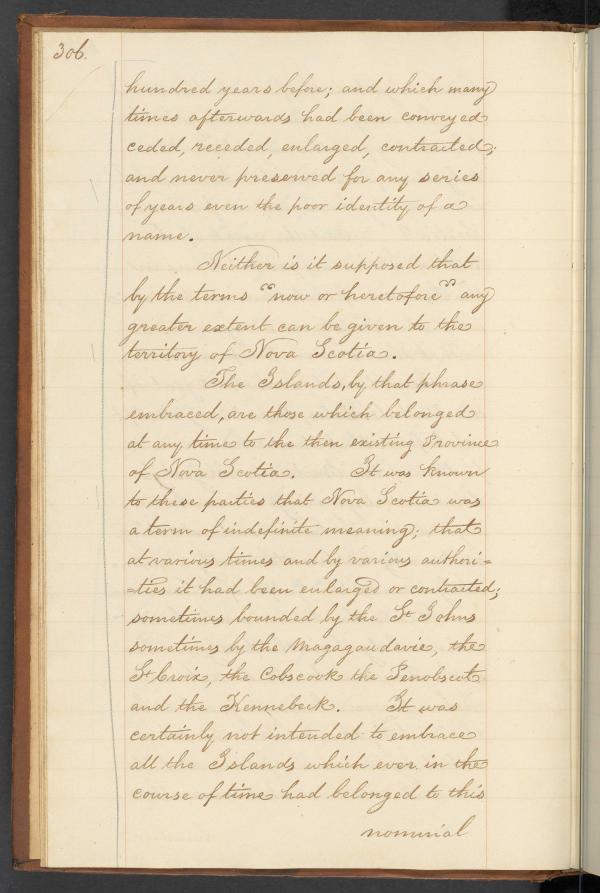 306.
hundred years before; and which many
times afterwards had been conveyed
ceded, receded, enlarged, contracted;
and never preserved for any series
of years even the poor identity of a
name.
Neither is it supposed that
by the terms "now or heretofore" any
greater extent can be given to the
territory of Nova Scotia.
The Islands, by that phrase
embraced, are those which belonged
at any time to the then existing Province
of Nova Scotia. It was known
to these parties that Nova Scotia was
a term of indefinite meaning; that
at various times and by various authori=
=ties it had been enlarged or contracted;
sometimes bounded by the St Johns
sometimes by the Magagaudavie, the
St Croix, the Cobscook the Penobscot
and the Kennebeck. It was
certainly not intended to embrace
all the Islands which ever in the
course of time had belonged to this
nominal